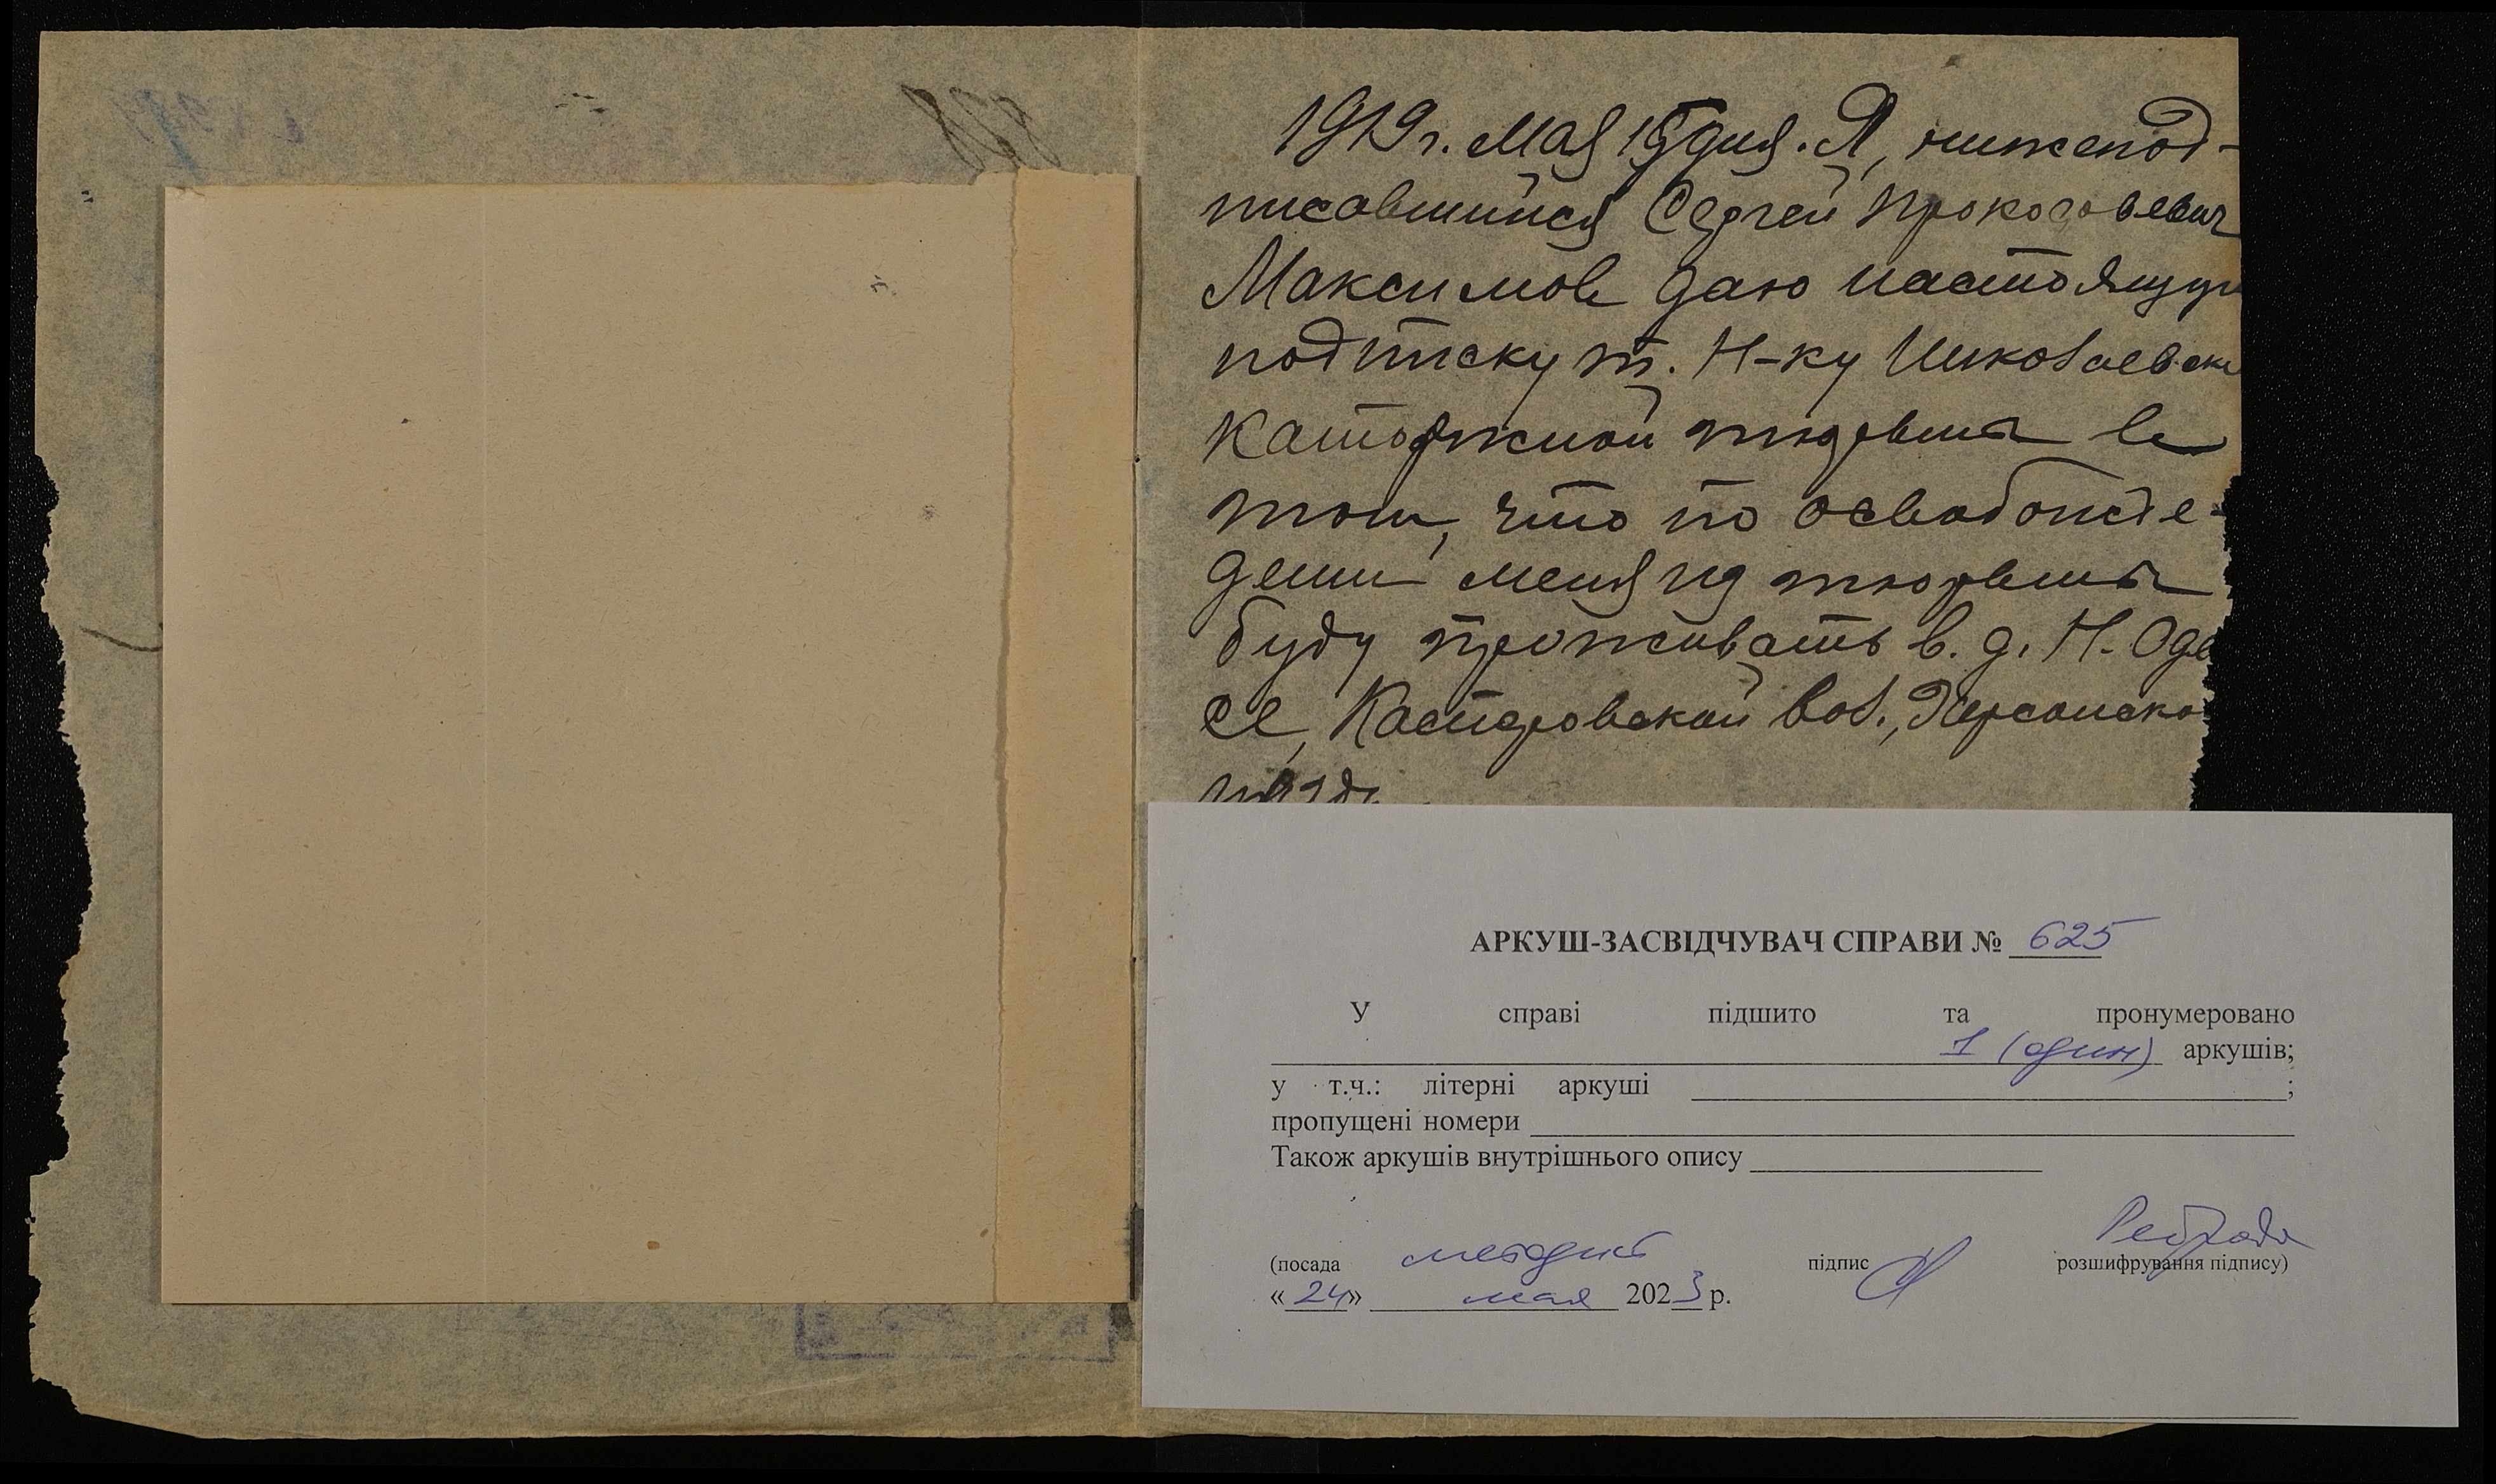 828
1919 г. мая 15 дня. Я, нижепод-
писавшийся Сергей
Максимов даю настоящую
подписку т. Н-ку Николаевск
каторжной тюрьмы в
том, что по освобожде-
дении меня из тюрьмы
буду проживать в д. Н. Оде
се, Касперовской вол., Херсонско
уезда
АРКУШ-ЗАСВІДЧУВАЧ СПРАВИ № 625
У справі підшито та пронумеровано
1 (один) аркушів;
у т.ч.: літерні аркуші ;
пропущені номери
Також аркушів внутрішнього опису
(посада методист підпис розшифрування підпису)
« 24 » мая 2023 р.